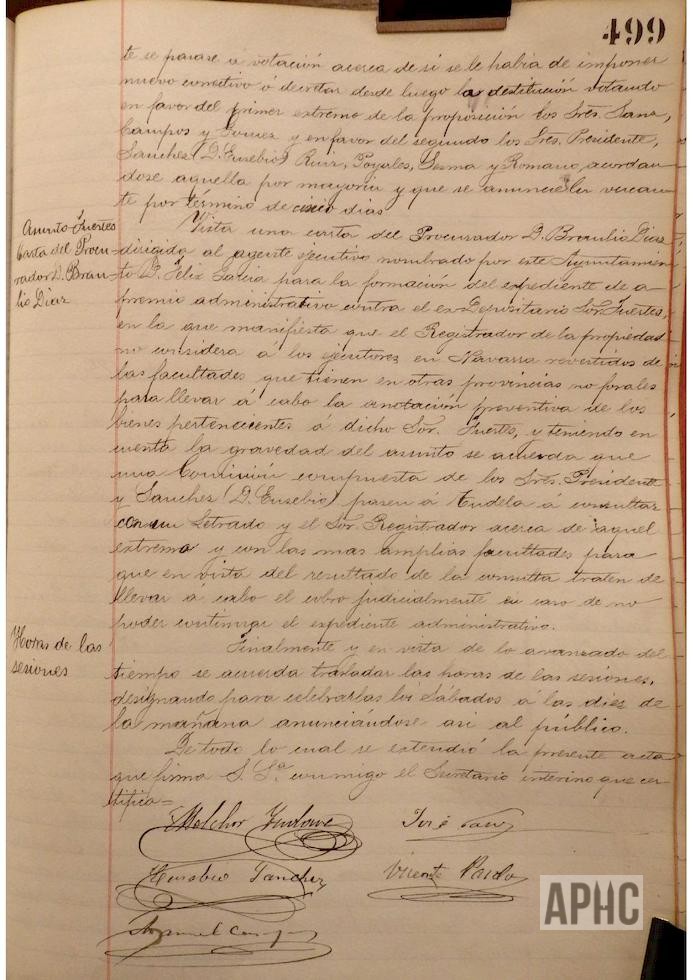 499
te se parase á votación acerca de si se le habia de imponer
nuevo correctivo ó decretar desde luego la destitución votando
en favor del primer extremo de la proposición los Sres. Sanz,
Campos y Gomez y en favor del segundo los Sres. Presidente,
Sanchez (D. Eusebio) Ruiz, Poyales, Lerma y Romano, acordan-
dose aquella por mayoria y que se anuncie la vacan-
te por término de cinco dias
Asunto Fuertes
Carta del Procu-
rador D. Brau-
lio Diaz
Vista una carta del Procurador D. Braulio Diaz
dirigida al agente ejecutivo nombrado por este Ayuntamien-
to D. Felix Garcia para la formación del expediente de a-
premio administrativo contra el ex-Depositario Sor. Fuertes,
en la que manifiesta que el Registrador de la propiedad
no considera á los ejecutores en Navarra revestidos de
las facultades que tienen en otras provincias no forales
para llevar á cabo la anotación preventiva de los
bienes pertenecientes á dicho Sor. Fuertes, y teniendo en
cuenta la gravedad del asunto se acuerda que
una Comisión compuesta de los Sres. Presidente
y Sanchez (D. Eusebio) pasen á Tudela á consultar
con un Letrado y el Sor. Registrador acerca de aquel
extremo y con las mas amplias facultades para
que en vista del resultado de la consulta traten de
llevar á cabo el cobro judicialmente en caso de no
poder continuar el expediente administrativo.
Horas de las
sesiones
Finalmente y en vista de lo avanzado del
tiempo se acuerda trasladar las horas de las sesiones,
designando para celebrarlas los Sábados á las diez de
la mañana anunciándose asi al público.
De todo lo cual se extendió la presente acta
que firma S. Sa. conmigo el Secretario interino que cer-
tifico=
Melchor José Sanz
Eusebio Sanchez Vicente Pardo
Manuel Campos
APHC